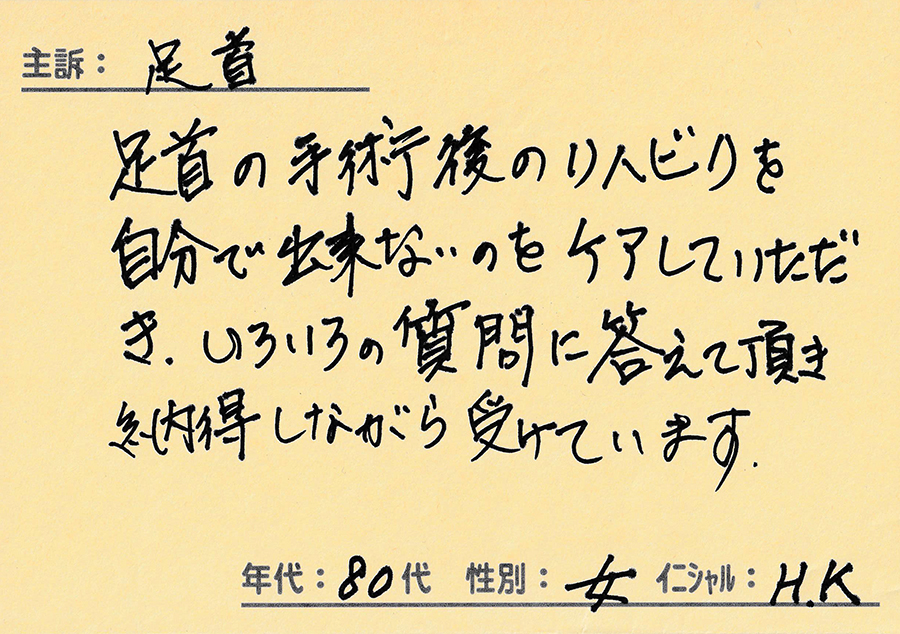 主訴： 足首
足首の手術後のリハビリを
自分で出来ないのをケアしていただ
き．いろいろの質問に答えて頂き
納得しながら受けています．
年代：80代 性別：女 イニシャル：H.K